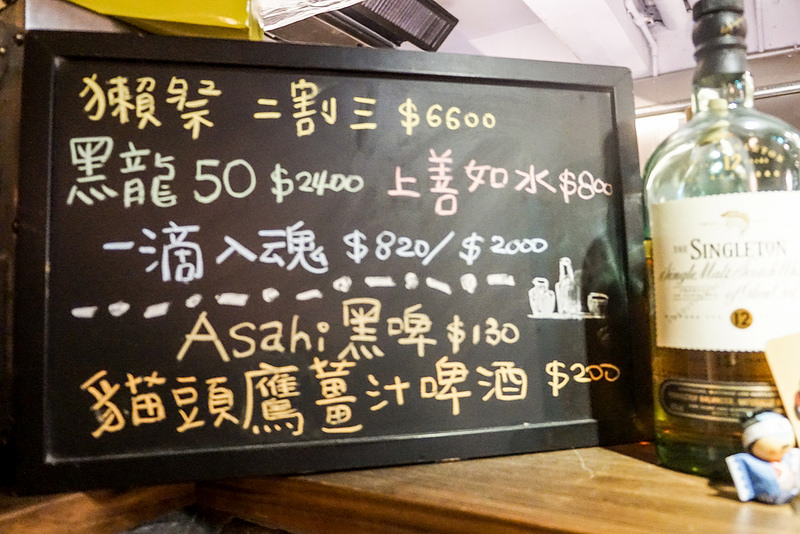 獺祭 二割三 $6600
黑龍 50 $2400 上善如水 $800
一滴入魂 $820/$2000
Asahi 黑啤 $130
貓頭鷹薑汁啤酒 $200
12
THE SINGLETON
Single Malt Scotch Whisky
12